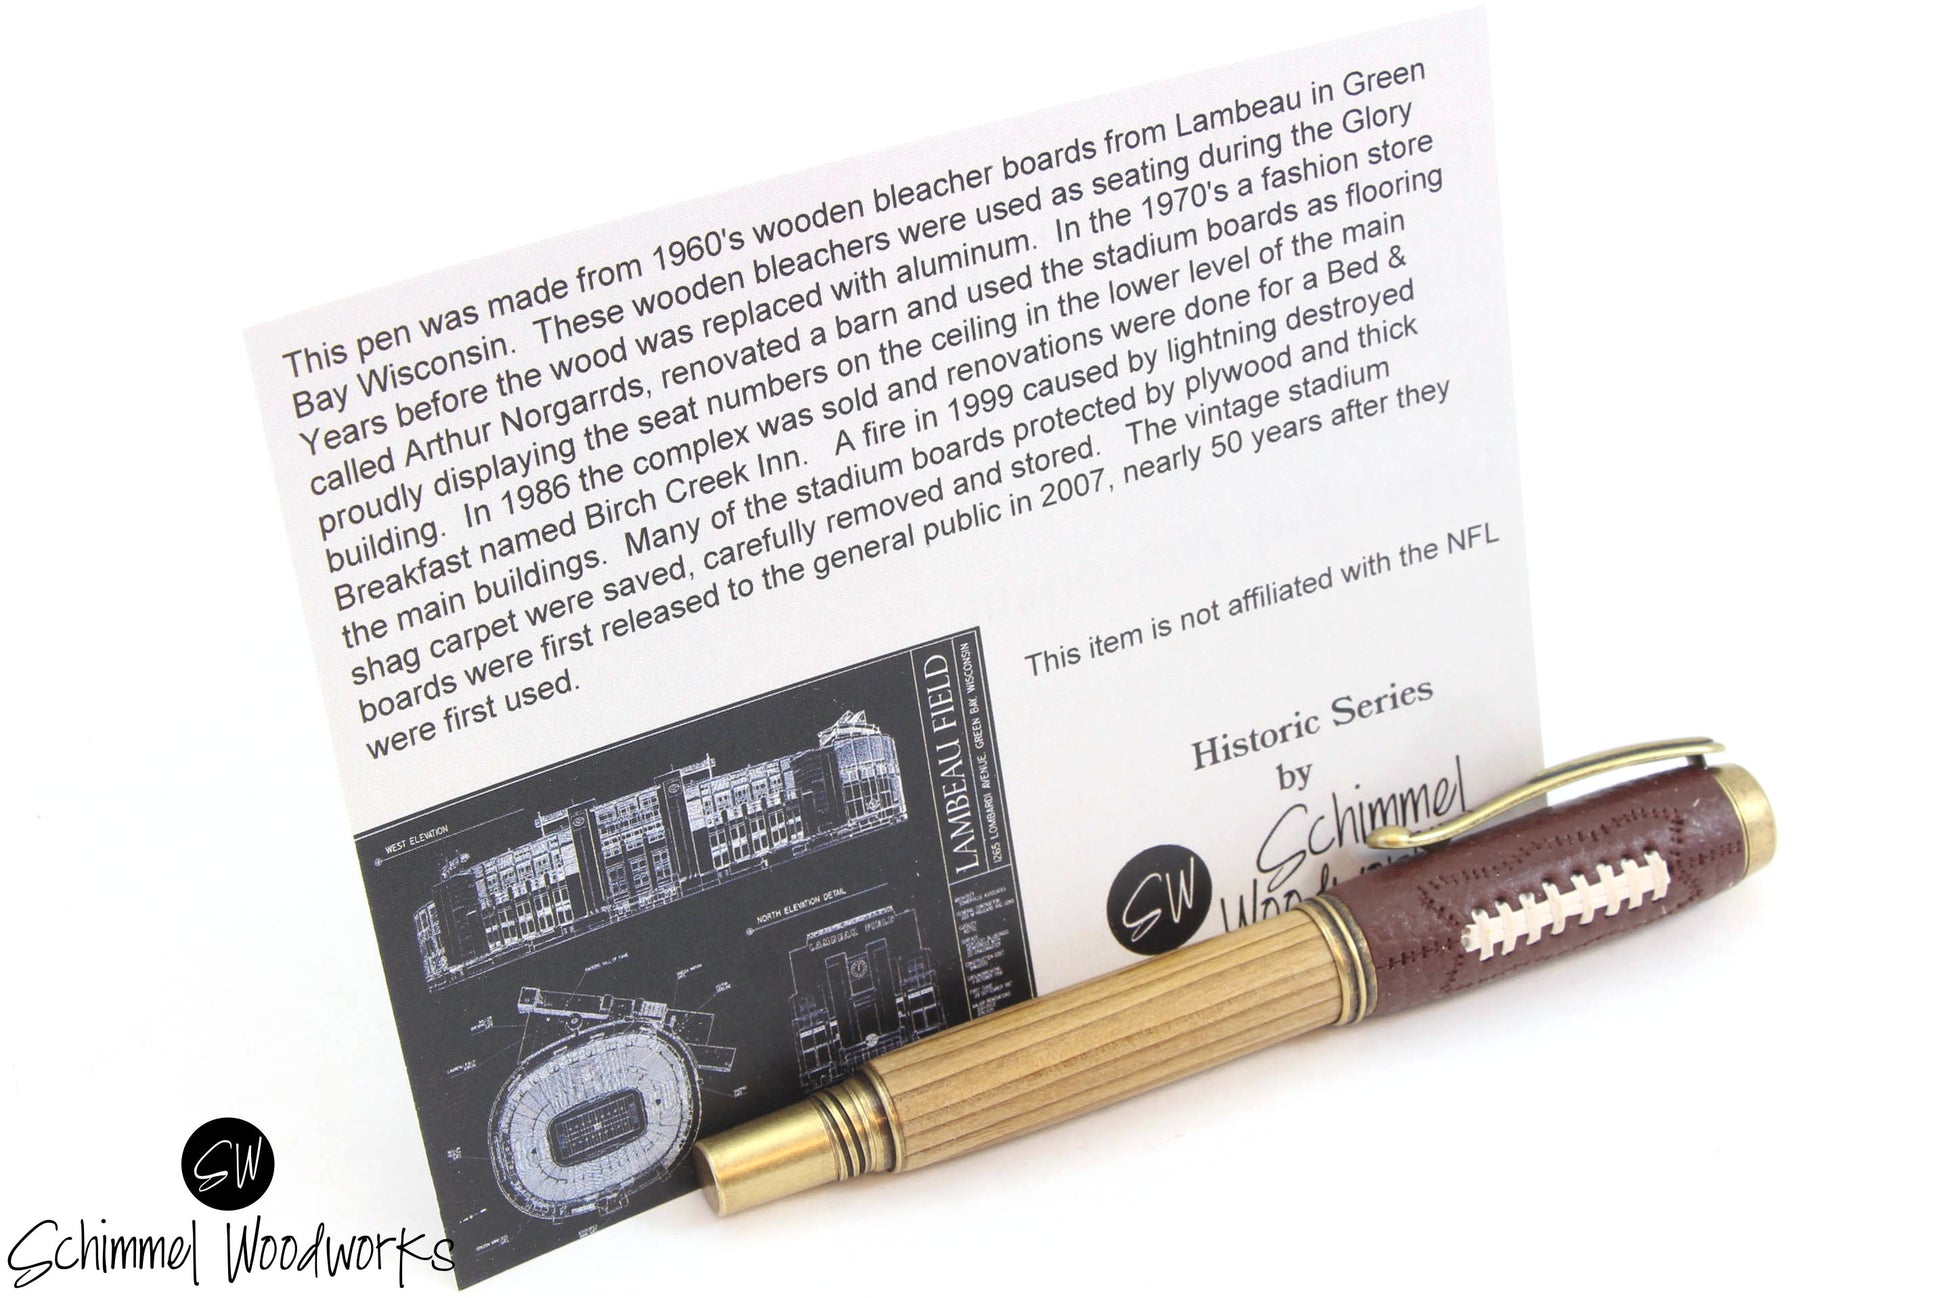 This pen was made from 1960's wooden bleacher boards from Lambeau in Green
Bay Wisconsin. These wooden bleachers were used as seating during the Glory
Years before the wood was replaced with aluminum. In the 1970's a fashion store
called Arthur Norgarrds, renovated a barn and used the stadium boards as flooring
proudly displaying the seat numbers on the ceiling in the lower level of the main
building. In 1986 the complex was sold and renovations were done for a Bed &
Breakfast named Birch Creek Inn. A fire in 1999 caused by lightning destroyed
the main buildings. Many of the stadium boards protected by plywood and thick
shag carpet were saved, carefully removed and stored. The vintage stadium
boards were first released to the general public in 2007, nearly 50 years after they
were first used.
This item is not affiliated with the NFL
Historic Series
by
Schimmel
SW
WEST ELEVATION
NORTH ELEVATION DETAIL
LAMBEAU FIELD
LAMBEAU FIELD
1265 LOMBARDI AVENUE, GREEN BAY, WISCONSIN
SW
Schimmel Woodworks